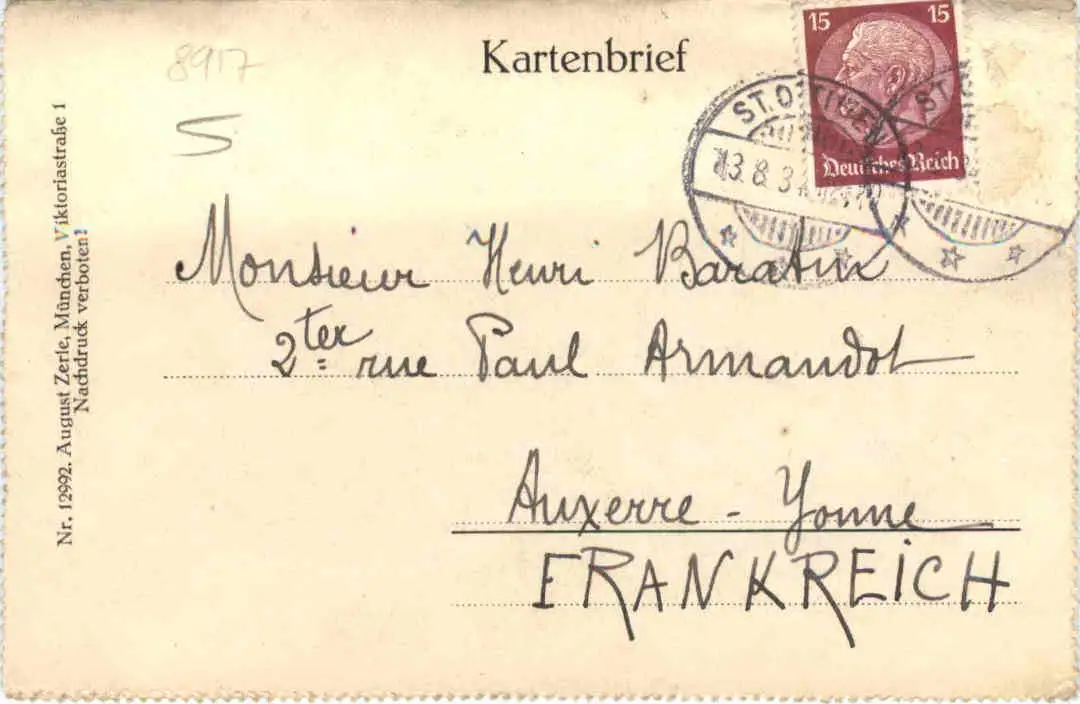 8917
Kartenbrief
15 15
Deutsches Reich
ST. OTTILIEN
13.8.3
ST.
5
Monsieur Henri Baratin
2ter rue Paul Armandot
Auxerre - Yonne
FRANKREICH
Nr. 12992. August Zerle, München, Viktoriastraße 1
Nachdruck verboten!